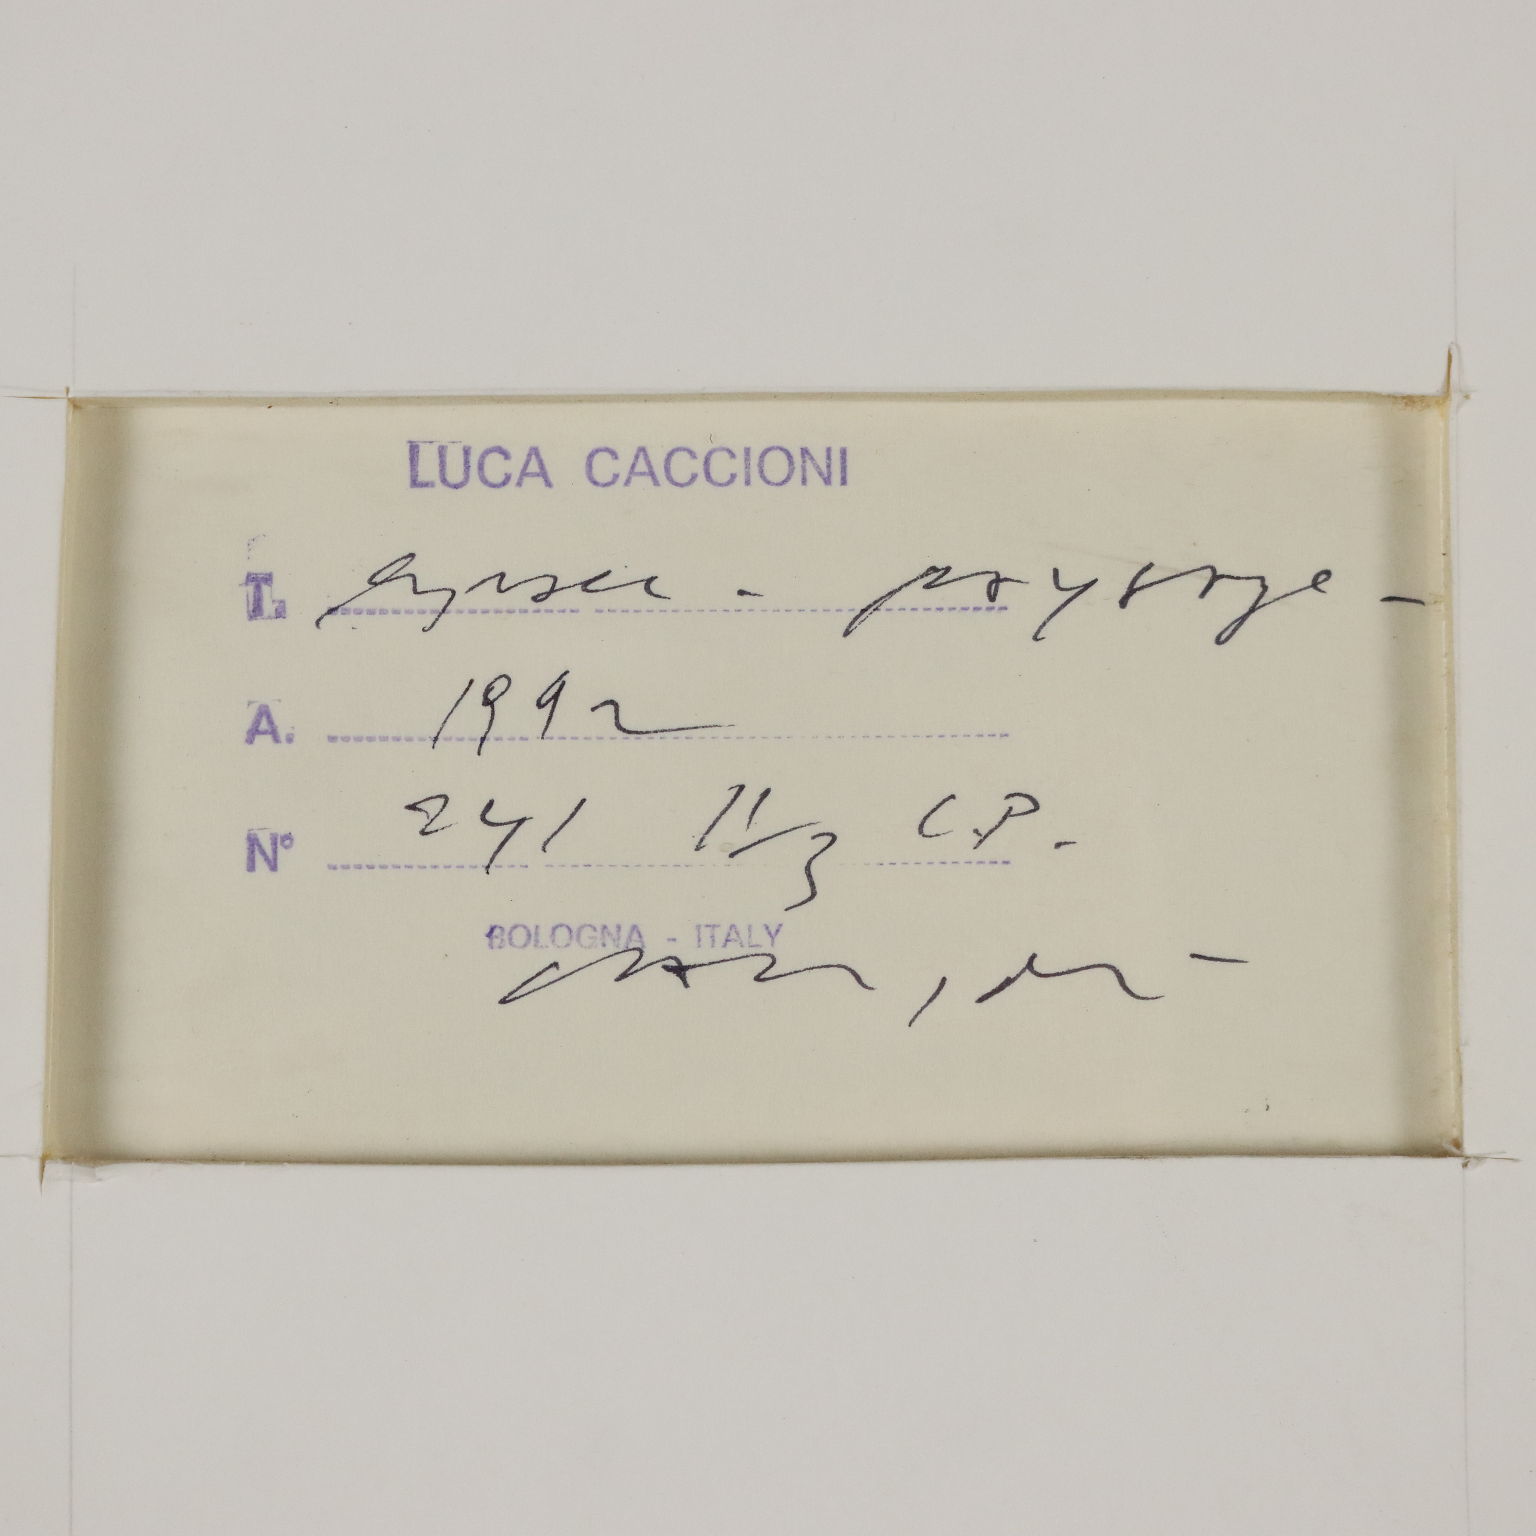 LUCA CACCIONI
T. - paysage -
A. 1992
N° 241 11/3 C.P.
BOLOGNA - ITALY